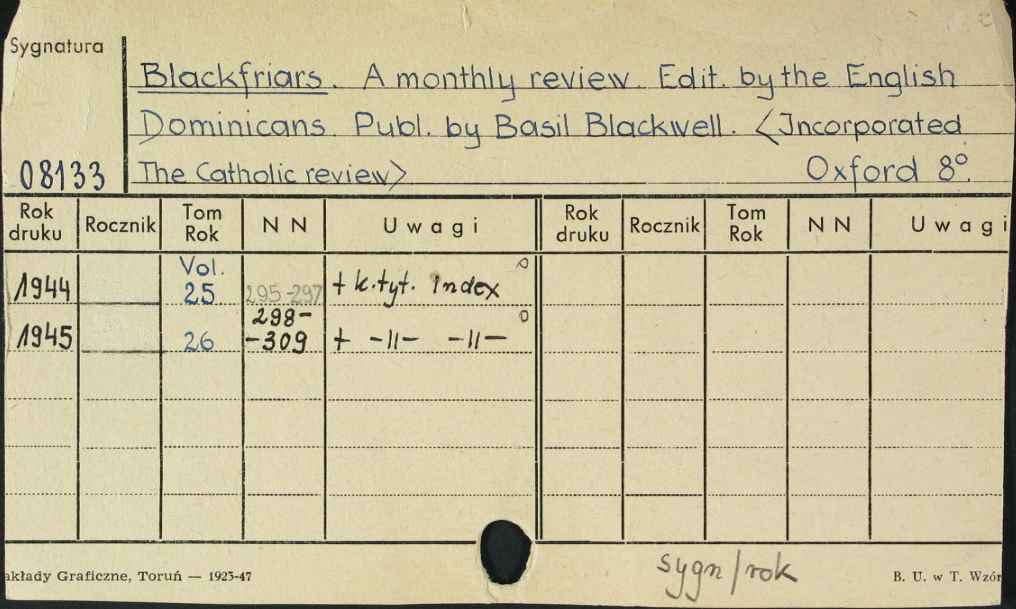 Sygnatura
Blackfriars. A monthly review. Edit. by the English
Dominicans. Publ. by Basil Blackwell. <Incorporated
08133 The Catholic review> Oxford 8°.
Rok druku Rocznik Tom Rok N N Uwagi Rok druku Rocznik Tom Rok N N Uwagi
Vol.
1944 25 295-297 + k.tyt. index
298-
1945 26 -309 + -||- -||-
sygn/rok
akłady Graficzne, Toruń — 1923-47 B. U. w T. Wzór